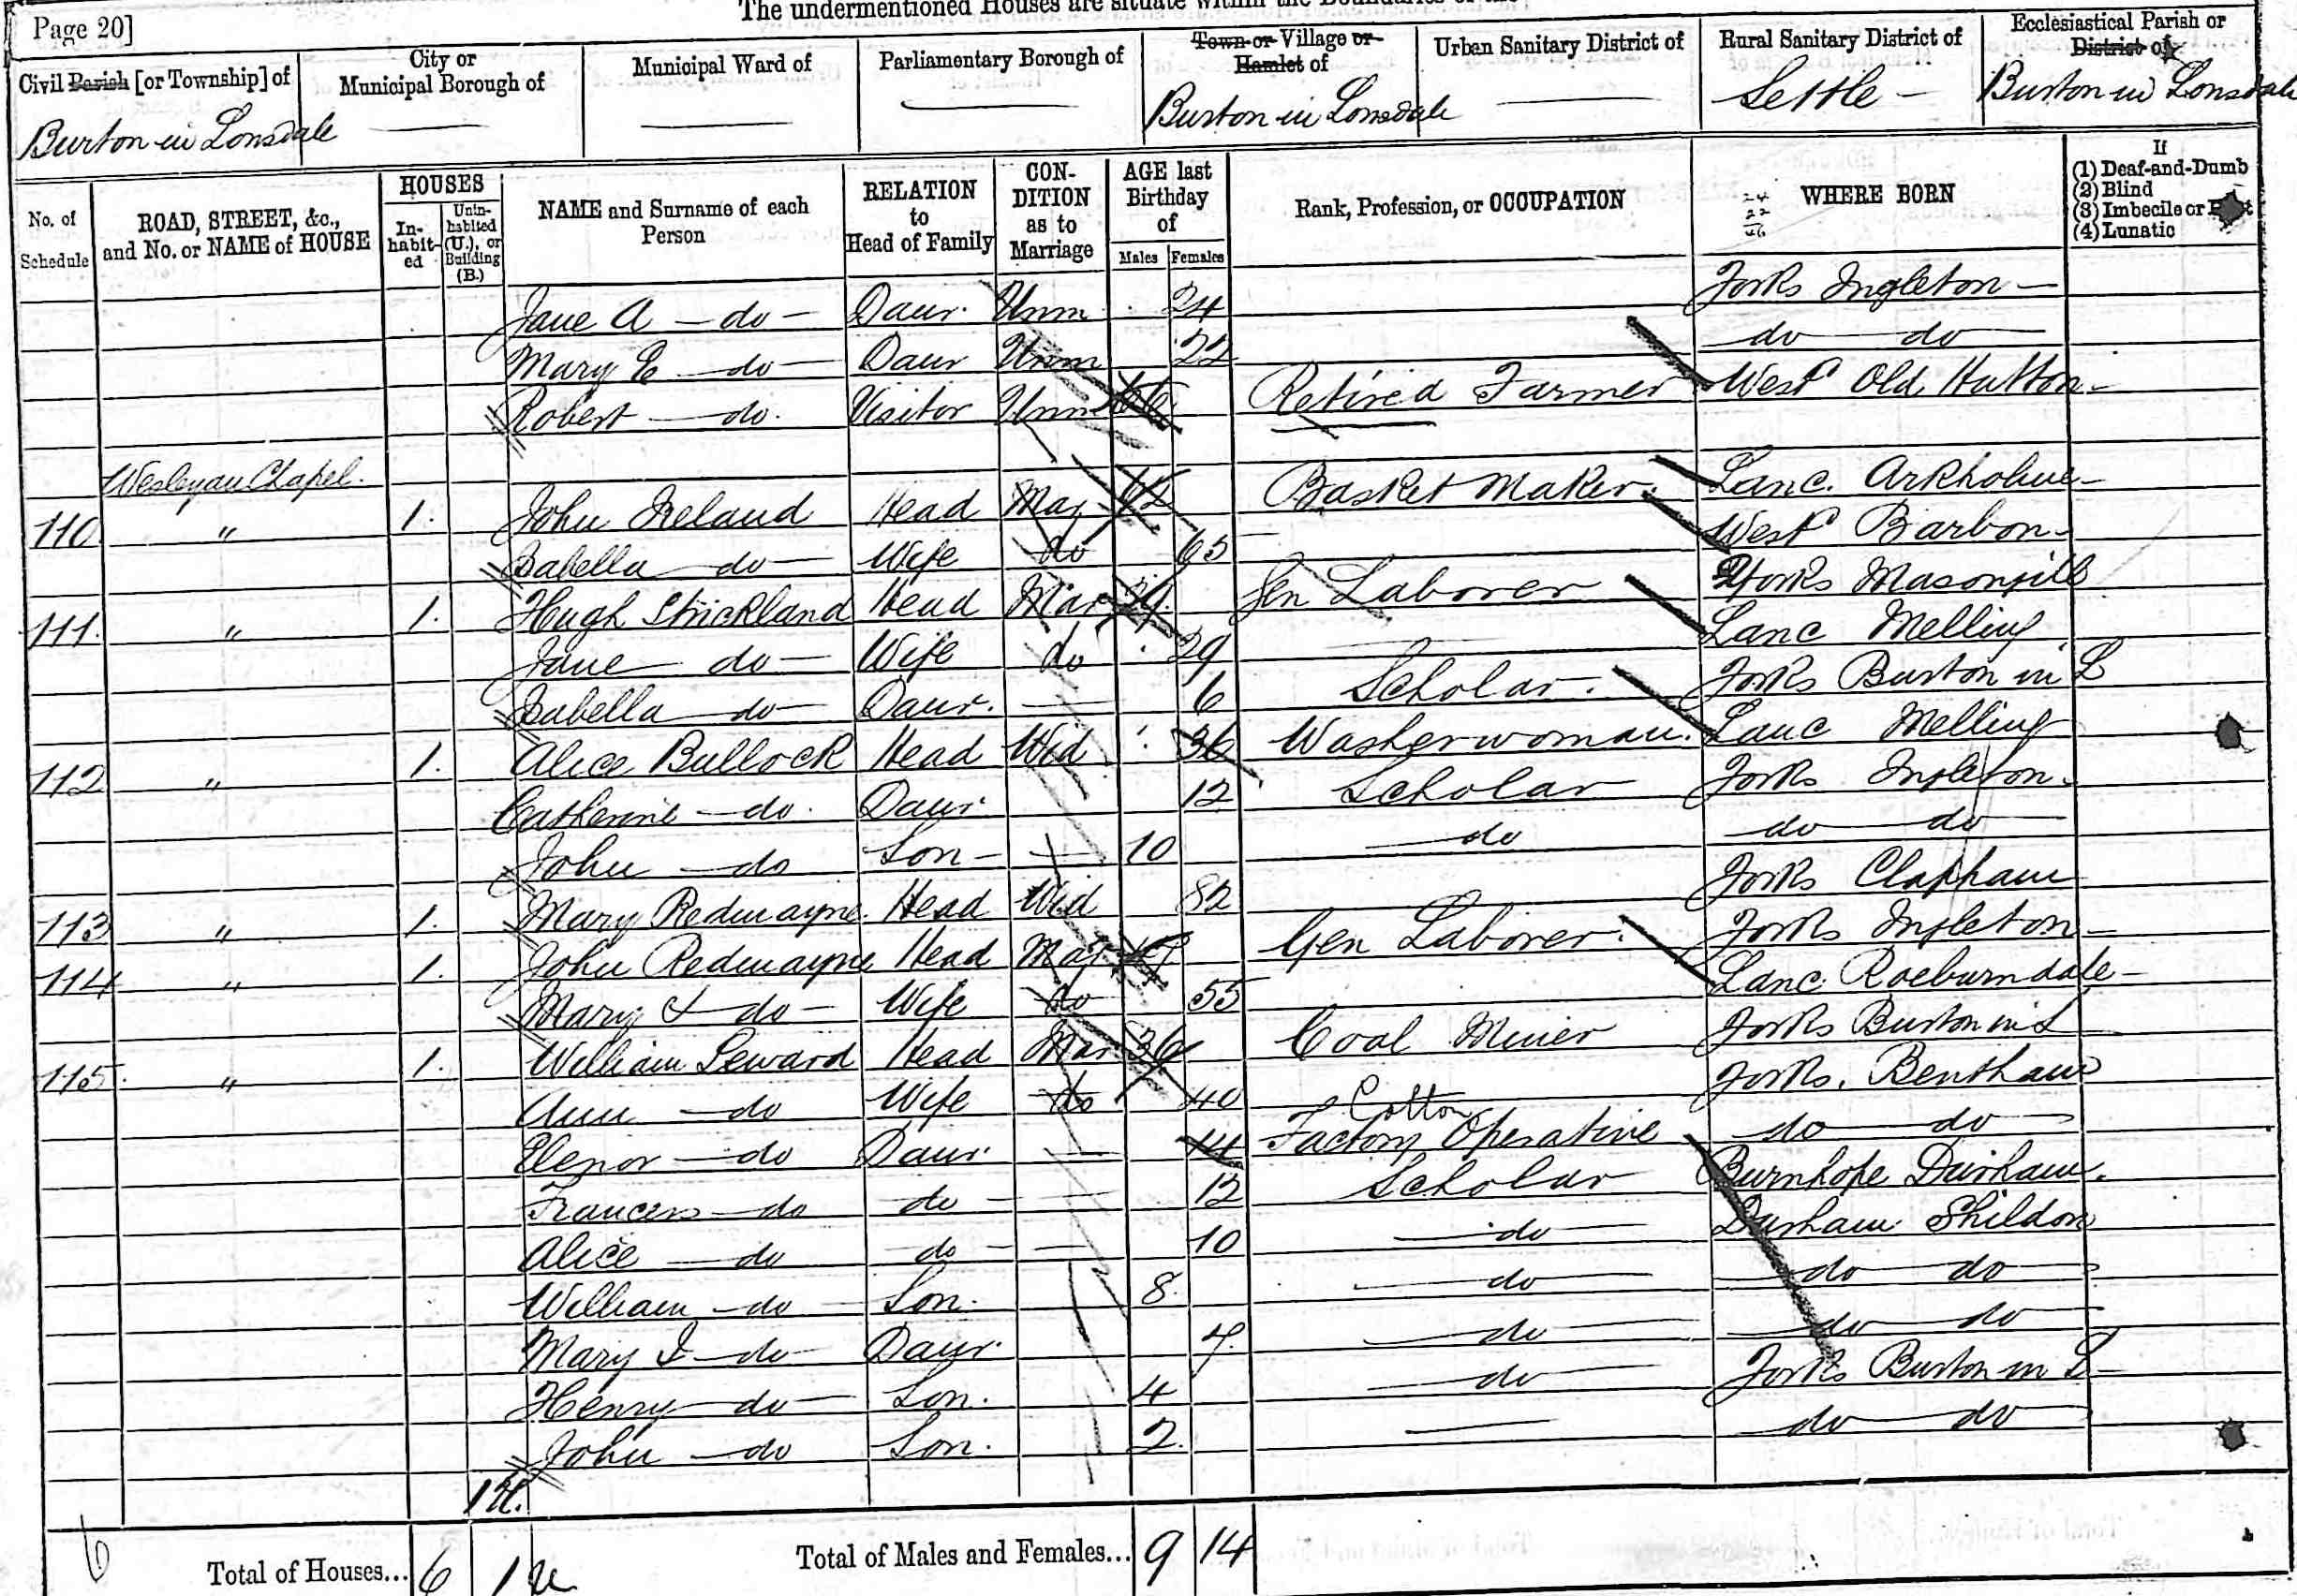 The undermentioned Houses are situate within the Boundaries of the
Page 20]
Civil Parish [or Township] of
Burton in Lonsdale
City or Municipal Borough of
—
Municipal Ward of
—
Parliamentary Borough of
—
Town or Village or Hamlet of
Burton in Lonsdale
Urban Sanitary District of
—
Rural Sanitary District of
Settle —
Ecclesiastical Parish or District of
Burton in Lonsdale
No. of Schedule
ROAD, STREET, &c., and No. or NAME of HOUSE
HOUSES
In-habit-ed
Unin-habited (U.), or Building (B.)
NAME and Surname of each Person
RELATION to Head of Family
CON-DITION as to Marriage
AGE last Birthday of
Males
Females
Rank, Profession, or OCCUPATION
24
22
46
WHERE BORN
If
(1) Deaf-and-Dumb
(2) Blind
(3) Imbecile or Idiot
(4) Lunatic
Jane A — do — Daur. Unm 24 Yorks Ingleton —
Mary E — do — Daur Unm 22 do do
Robert — do. Visitor Unm 66 Retired Farmer Westd Old Hutton —
Wesleyan Chapel.
110 " 1. John Ireland Head Mar Basket Maker. Lanc. Arkholme —
Isabella do — Wife do 65 — Westd Barbon —
111. " 1. Hugh Strickland Head Mar Gen Laborer Yorks Masongill
Jane — do — Wife do 29 — Lanc Melling
Isabella — do — Daur. — 6 Scholar. Yorks Burton in L
112 " 1. Alice Bullock Head Wid 36 Washerwoman. Lanc Melling
Catherine — do. Daur. 12 Scholar Yorks Ingleton.
John — do Son — — 10 — do do do
113 " 1. Mary Redmayne Head Wid 82 Yorks Clapham
114 " 1. John Redmayne Head Mar Gen Laborer. Yorks Ingleton —
Mary — do — Wife do 55 Lanc. Roeburndale —
115. " 1. William Seward Head Mar 36 Coal Miner Yorks Burton in L
Ann — do Wife do 40 Yorks. Bentham
Elenor — do Daur. — 14 Cotton Factory Operative do do
Frances — do do — — 12 Scholar Burnhope Durham.
Alice — do do — — 10 do Durham Shildon
William — do — Son. 8. do do do
Mary I — do — Daur. 7. do do do
Henry — do — Son. 4 do Yorks Burton in L —
John — do Son. 2. — do do
1 U.
Total of Houses... 6 1 U
Total of Males and Females... 9 14